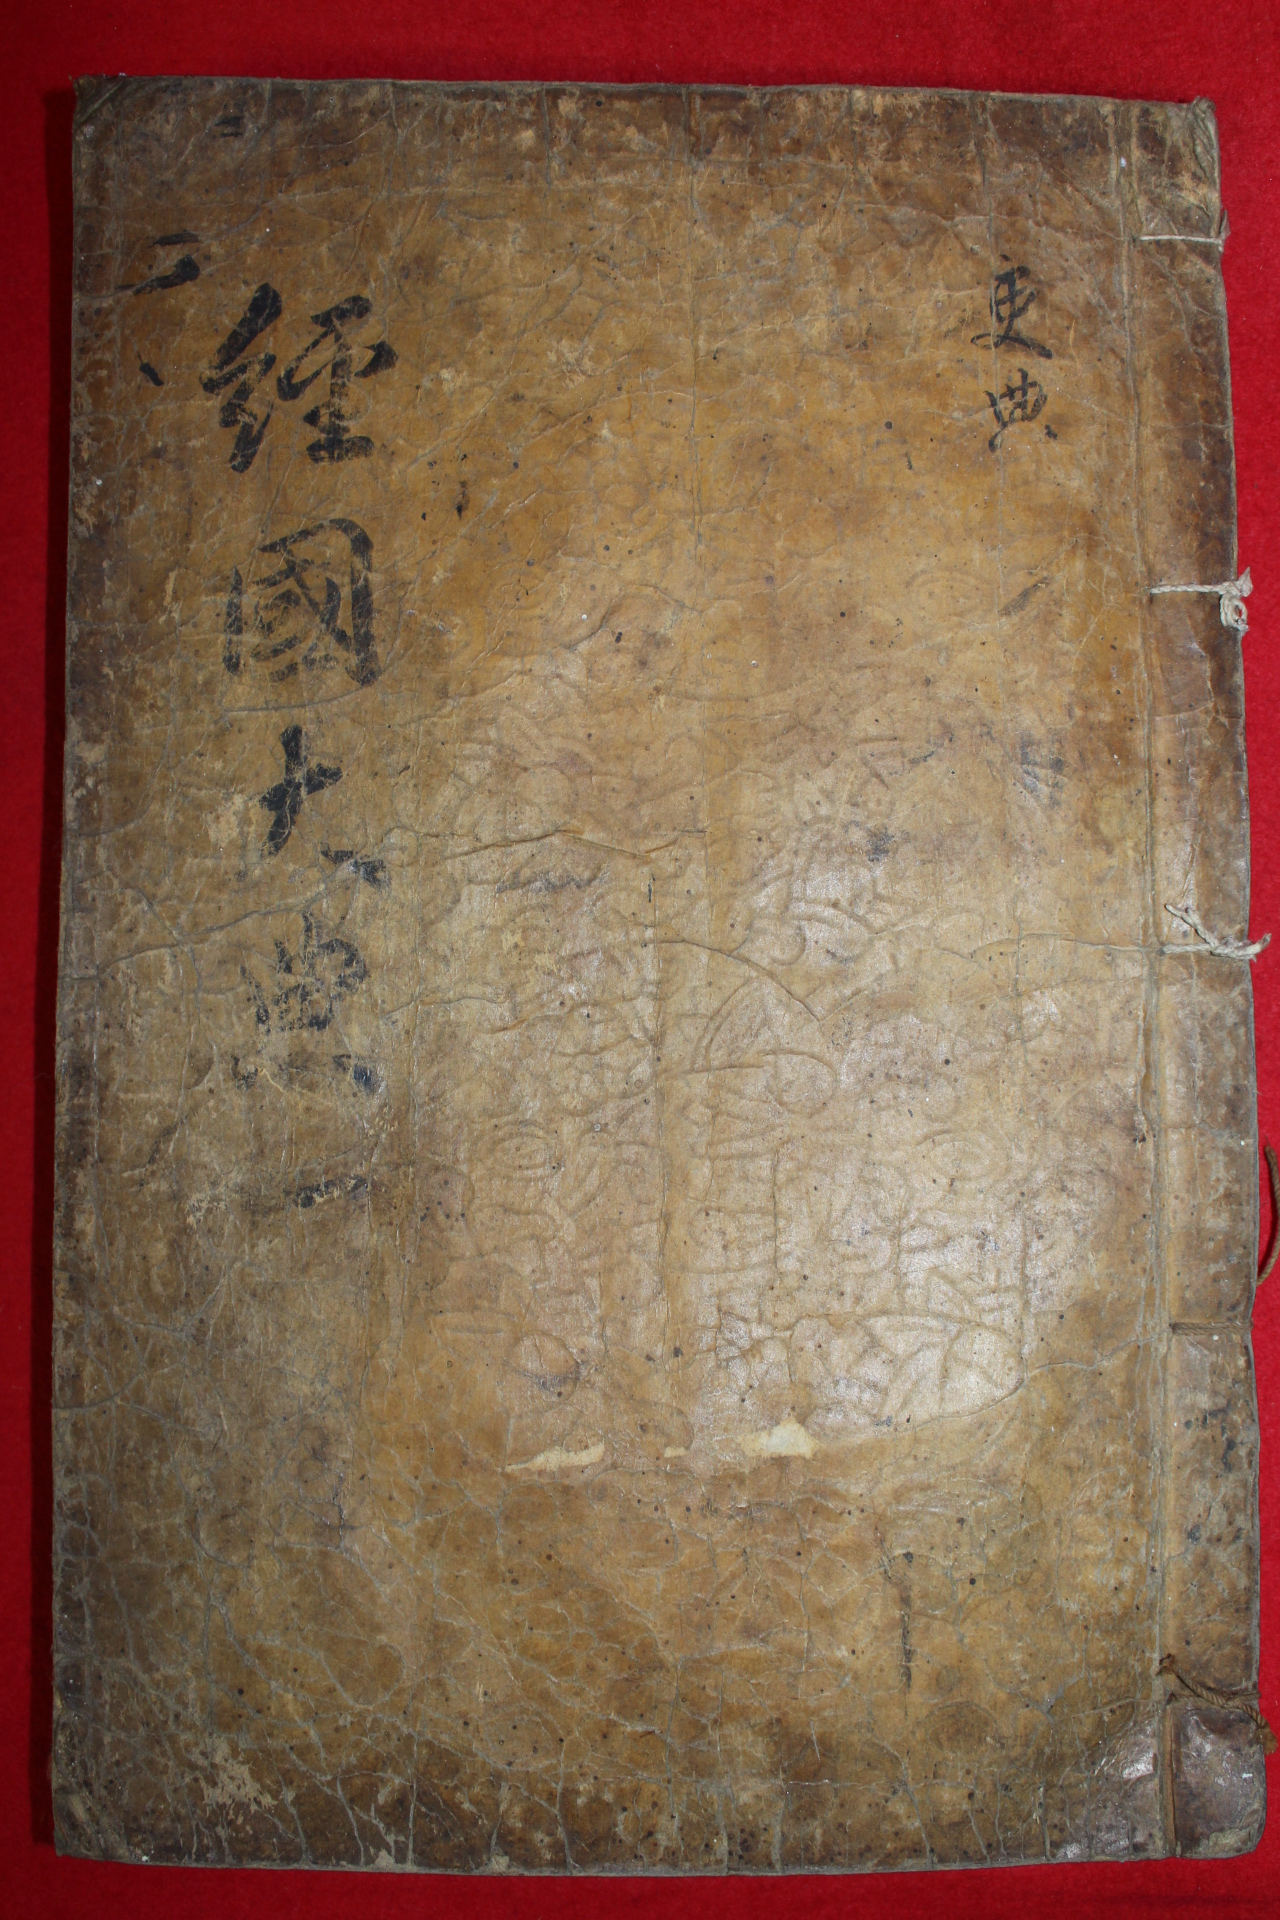 吏典
經國大典 一